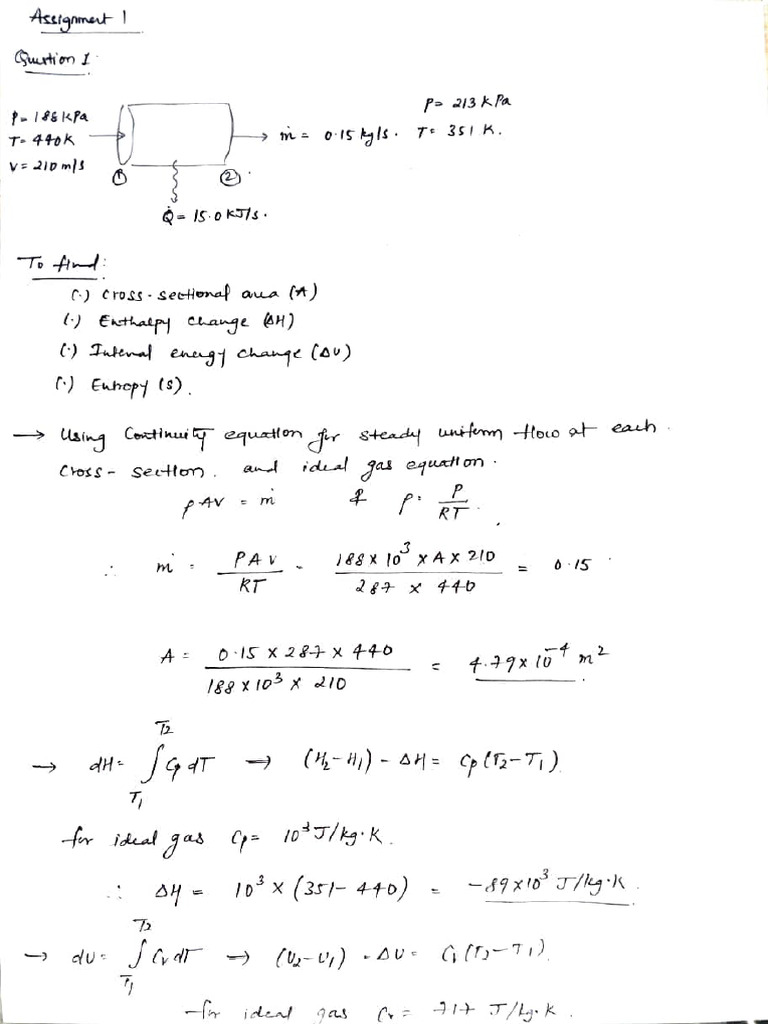 Assignment 1
Question 1
P = 188 kPa
T = 440K
V = 210 m/s
①
②
ṁ = 0.15 kg/s.
P = 213 kPa
T = 351 K.
Q̇ = 15.0 KJ/s.
To find:
(·) Cross-sectional area (A)
(·) Enthalpy change (ΔH)
(·) Internal energy change (ΔU)
(·) Entropy (s).
→ Using Continuity equation for steady uniform flow at each
cross-section. and ideal gas equation.
ρAV = ṁ & ρ = P/RT.
∴ ṁ = PAV/RT = 188 × 10³ × A × 210 / 287 × 440 = 0.15
A = 0.15 × 287 × 440 / 188 × 10³ × 210 = 4.79 × 10⁻⁴ m²
→ dH = ∫_T₁^T₂ Cp dT → (H₂-H₁) = ΔH = Cp (T₂-T₁).
for ideal gas Cp = 10³ J/kg·K.
∴ ΔH = 10³ × (351-440) = -89×10³ J/kg·K.
→ du = ∫_T₁^T₂ Cv dT → (U₂-U₁) = ΔU = Cv (T₂-T₁).
for ideal gas Cv = 717 J/kg·K.